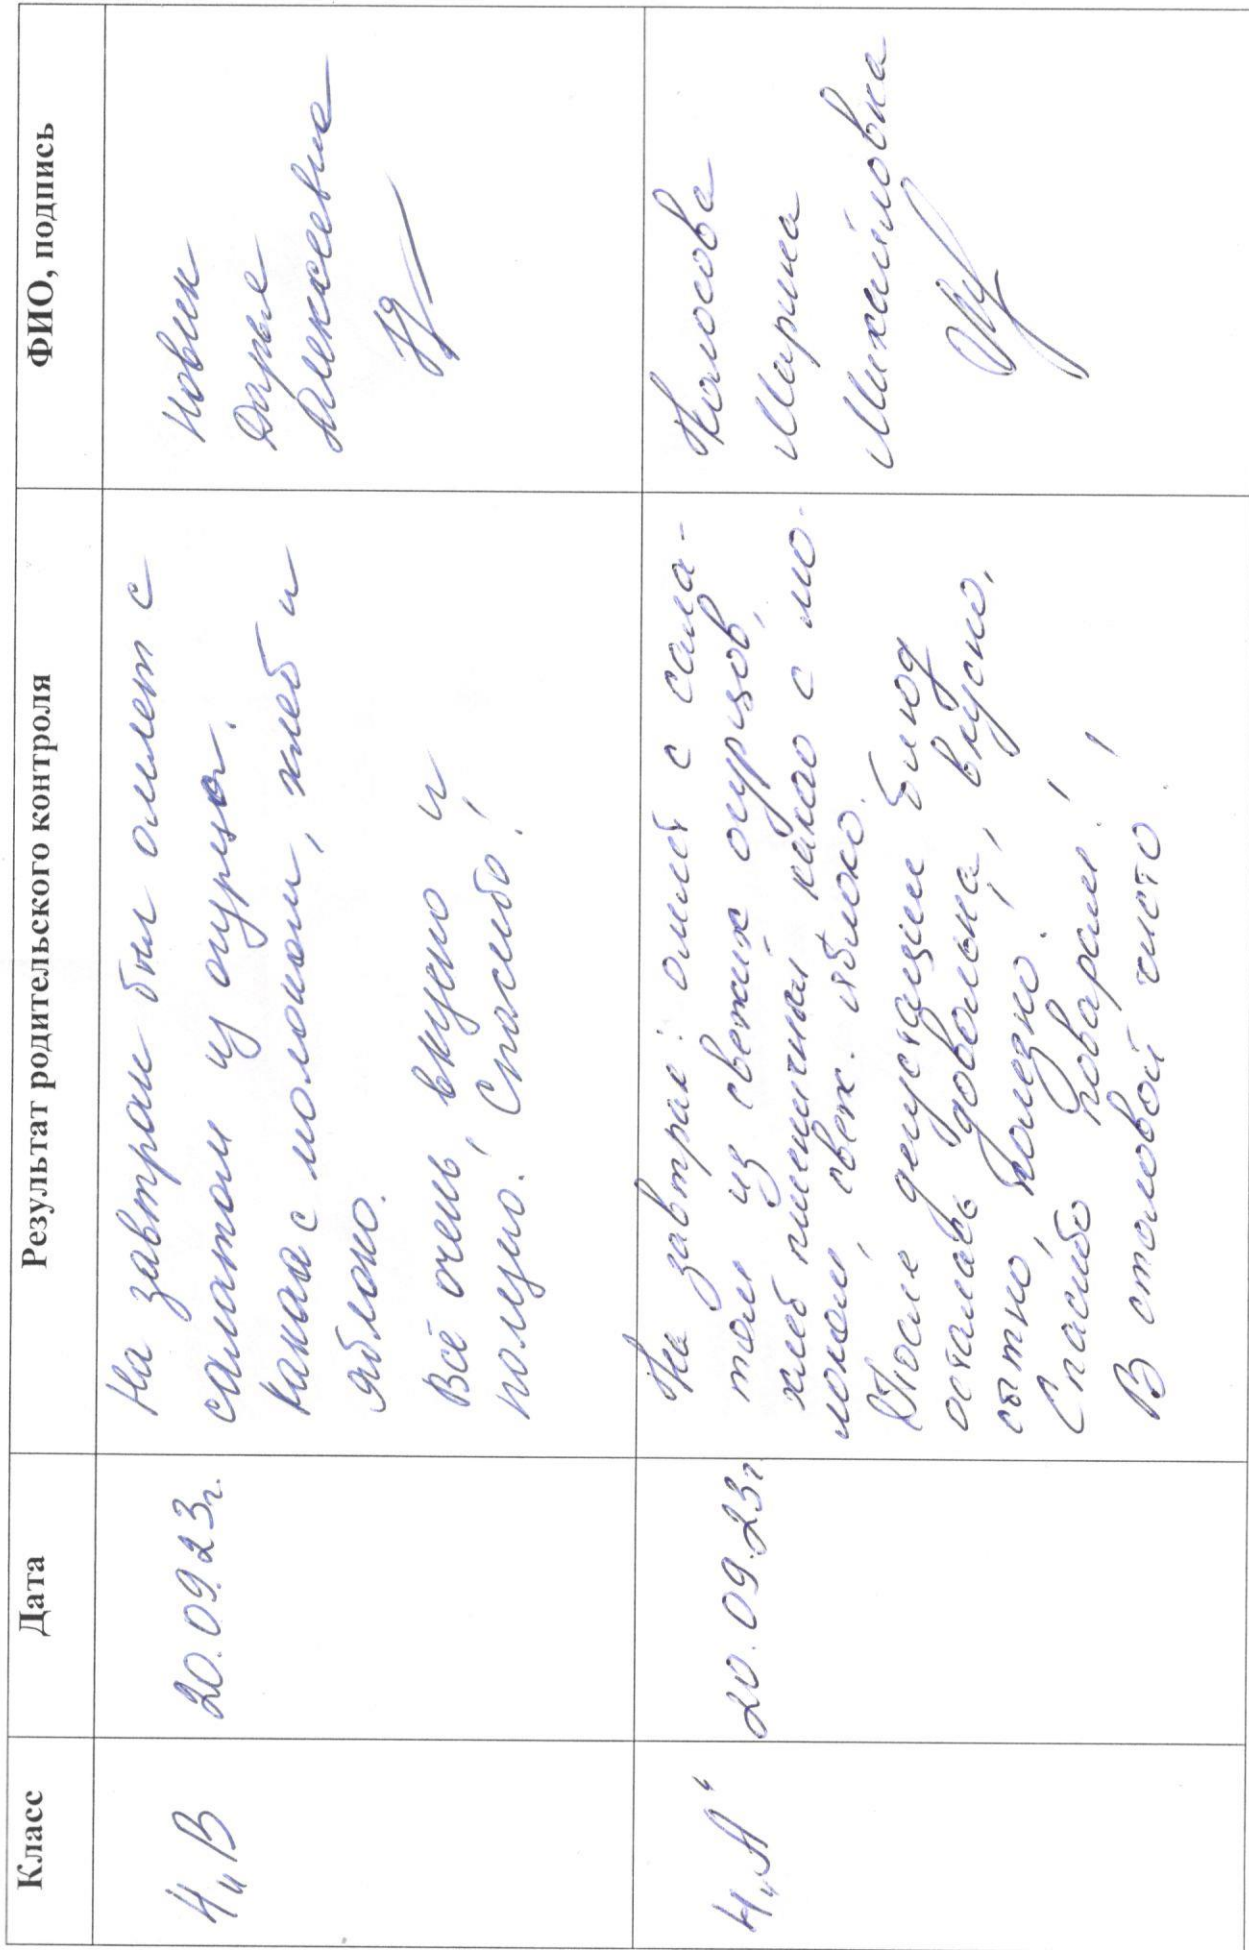 Класс Дата Результат родительского контроля ФИО, подпись
4„В 20.09.23г.
На завтрак был омлет с
салатом из огурца.
Какао с молоком, хлеб и
яблоко.
Всё очень, вкусно и
полезно! Спасибо!
Новик
Дарья
Алексеевна
4„А“ 20.09.23г
На завтрак: омлет с сала-
том из свежих огурцов,
хлеб пшеничный какао с мо-
локом, свеж. яблоко.
После дегустации блюд
осталась довольна, вкусно,
сытно, полезно!
Спасибо поварам!
В столовой чисто!
Колосова
Марина
Михайловна